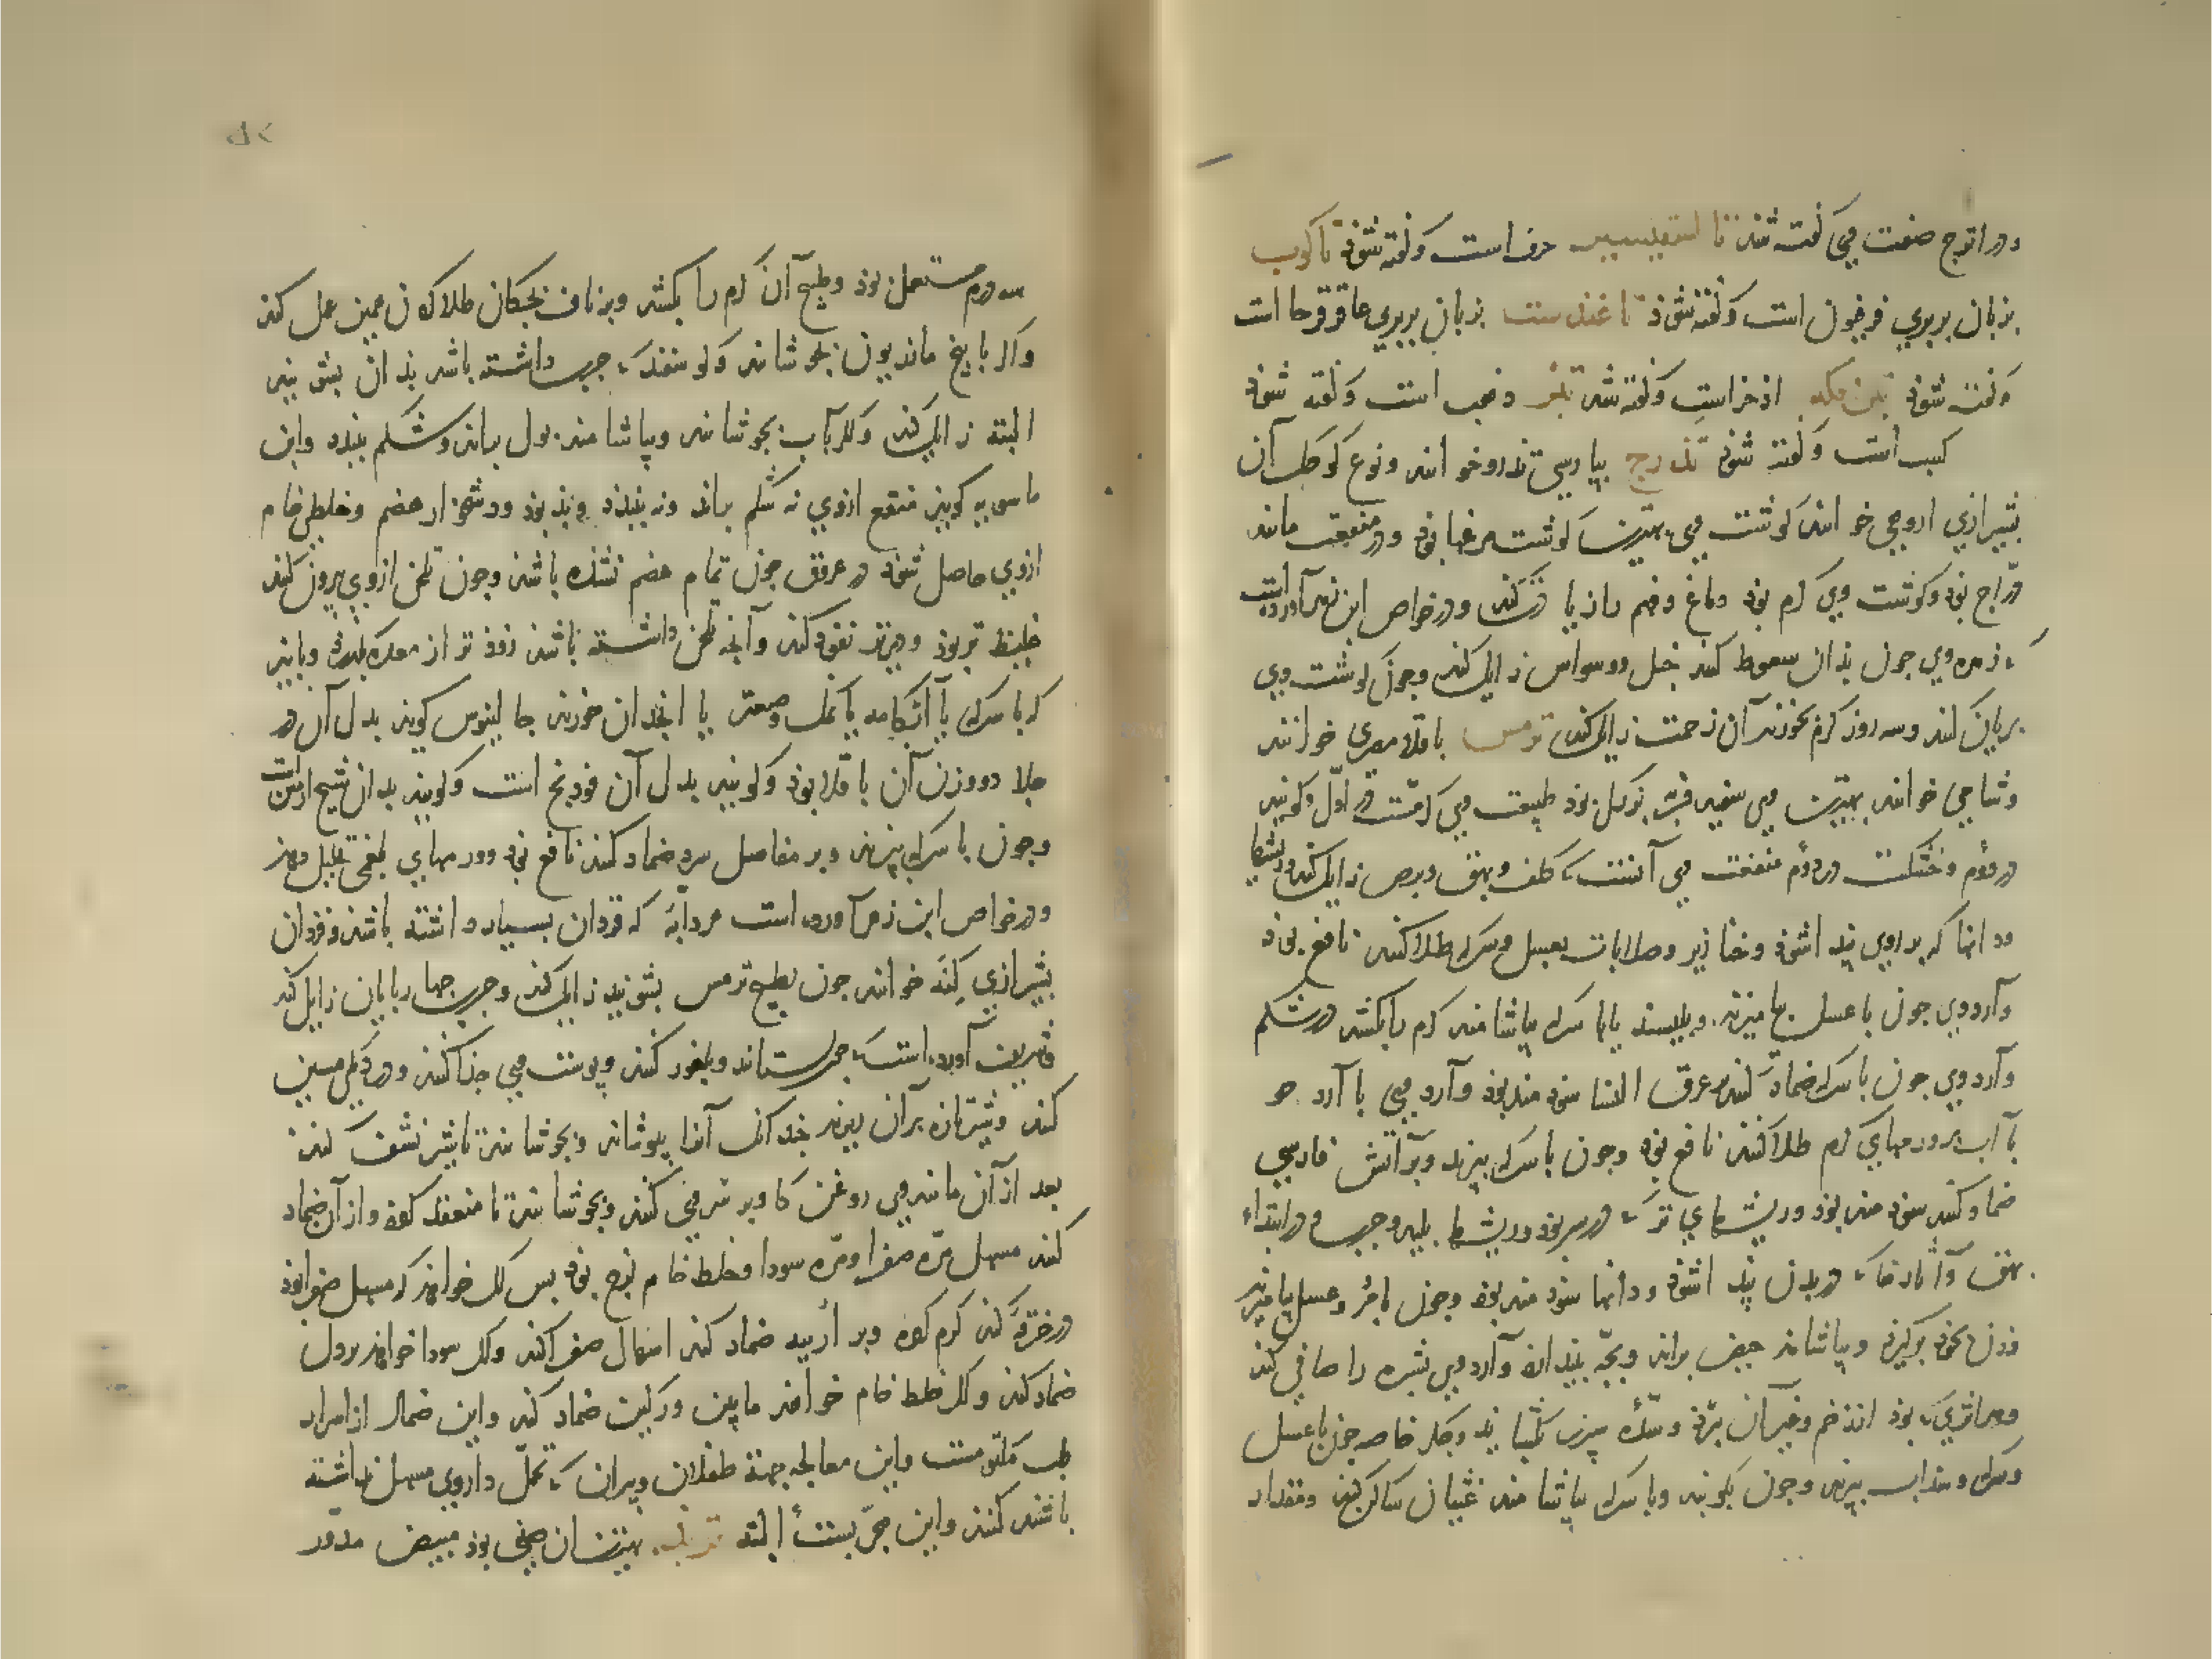 و در اترج صفت وی گفته شد تا حرف است و گفته شود تاکوب
بزبان بربری فربیون است و گفته شود تاغندست بزبان بربری عاقرقرحا است
و گفته شود تبن مکه اذخر است و گفته شد تبر ذهب است و گفته شود
است و گفته شود تذرج بپارسی تذرو خوانند و نوع کوچک آن
بشیرازی خوانند گوشت وی بهترین گوشت مرغها بود و در منفعت مانند
دراج بود و گوشت وی گرم بود دماغ و فهم را زیادت کند و در خواص ابن زهر آورده است
که زهره وی چون بدان سعوط کنند خبل و وسواس زایل کند و چون گوشت وی
بریان کنند و سه روز گرم بخورند آن زحمت زایل کند ترمس باقلاء مصری خوانند
و شامی خوانند بهترین وی سفید بزرگ بود طبیعت وی گرمست در اول و گویند
در دوم و خشکست در دوم منفعت وی آنست که کلف و بهق و برص زایل کند و ریشها
و دانها که بر روی پیدا شود و خنازیر و صلابات بعسل و سرکه طلا کنند نافع بود
و آرد وی چون با عسل بیامیزند و بلیسند یا با سرکه بیاشامند کرم را بکشد در شکم
و آرد وی چون با سرکه ضماد کنند بر عرق النسا سود مند بود و آرد وی با آرد جو
با آب بر ورمهای گرم طلا کنند نافع بود و چون با سرکه بپزند و بر آتش فارسی
ضماد کنند سود مند بود و ریشهای تر که در سر بود و ریشها پلید و جرب در ابتداء
بهق و آثارها که در بدن پیدا شود و دانها سود مند بود و چون با مر و عسل بیامیزند
زن بخود برگیرد و بیاشامد حیض براند و بچه بیندازد و آرد وی بشره را صافی کند
و هر اثری که بود از زخم و غیر آن ببرد و سده سپرز بگشاید و جگر خاصه چون با عسل
و سرکه و سداب بپزند و چون بکوبند و با سرکه بیاشامند غثیان ساکن کند و مقدار
سه درم مستعمل بود و طبیخ آن کرم را بکشد و بر ناف بچکان طلا کردن همین عمل کند
و اگر با بیخ مازریون بجوشانند و گوسفند که جرب داشته باشد بدان بشویند
البته زایل کند و اگر بآب بجوشانند و بیاشامند بول براند و شکم ببندد و ابن
ماسویه گوید منقع از وی نه شکم براند و نه ببندد و بد بود و دشخوار هضم و خلطی خام
از وی حاصل شود در عروق چون تمام هضم نشده باشد و چون تلخی از وی بیرون کنند
غلیظ تر بود و دیرتر نفوذ کند و آنچه تلخی داشته باشد زود تر از معده بگذرد و باید
که با سرکه یا آبکامه یا نمک و صعتر یا انجدان خورند جالینوس گوید بدل آن در
جلا دو وزن آن باقلا بود و گویند بدل آن فودنج است و گویند بدل آن شیح ارمنی است
و چون با سرکه بپزند و بر مفاصل سرد ضماد کنند نافع بود و ورمهای بلغمی تحلیل دهد
و در خواص ابن زهر آورده است هر دابه که قردان بسیار داشته باشد و قردان
بشیرازی کنه خوانند چون بطبیخ ترمس بشویند زایل کند و جرب چهارپایان زایل کند
و شریف آورده است که چون بستانند و بلغور کنند و پوست وی جدا کنند و در دیگی مسین
کنند و شیر تازه بر آن ریزند چندانک آنرا بپوشاند و بجوشانند تا شیر نشف کند
بعد از آن مانند وی روغن گاو بر سر وی کنند و بجوشانند تا منعقد گردد و از آن ضماد
کنند مسهل مره صفرا و مره سودا و خلط خام لزج بود پس اگر خواهند که مسهل صفرا بود
در خرقه کنند گرم کرده و بر ضماد کنند اسهال صفرا کند و اگر سودا خواهند بر دل
ضماد کنند و اگر خلط خام خواهند مابین ورکین ضماد کنند و این ضماد از اسرار
طب مکتومست و این معالجه جهة طفلان و پیران که تحمل داروی مسهل نداشته
باشند کنند و این مجرب است البته تربد بهترین آن چینی بود مبیض مدور